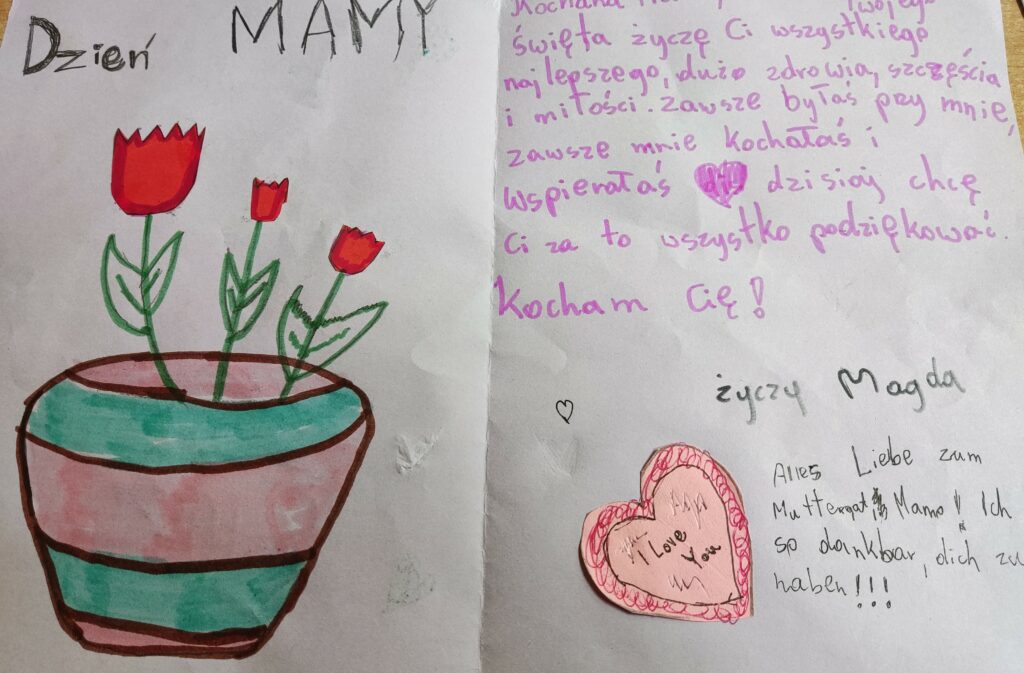 Dzień MAMY
Kochana
święta życzę Ci wszystkiego
najlepszego, dużo zdrowia, szczęścia
i miłości. Zawsze byłaś przy mnie,
zawsze mnie kochałaś i
wspierałaś dzisiaj chcę
Ci za to wszystko podziękować.
Kocham Cię!
życzy Magda
Alles Liebe zum
Mamo! Ich
so dankbar, dich zu
haben!!!
I Love
You